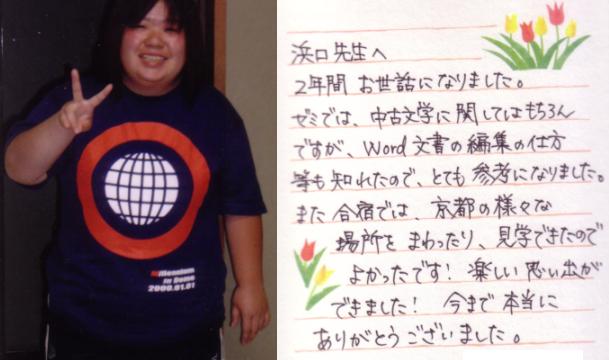 Millennium
In Dome
2000.01.01
浜口先生へ
2年間 お世話になりました。
ゼミでは、中古文学に関してはもちろん
ですが、Word文書の編集の仕方
等も知れたので、とても参考になりました。
また合宿では、京都の様々な
場所をまわったり、見学できたので
よかったです！楽しい思い出が
できました！今まで本当に
ありがとうございました。